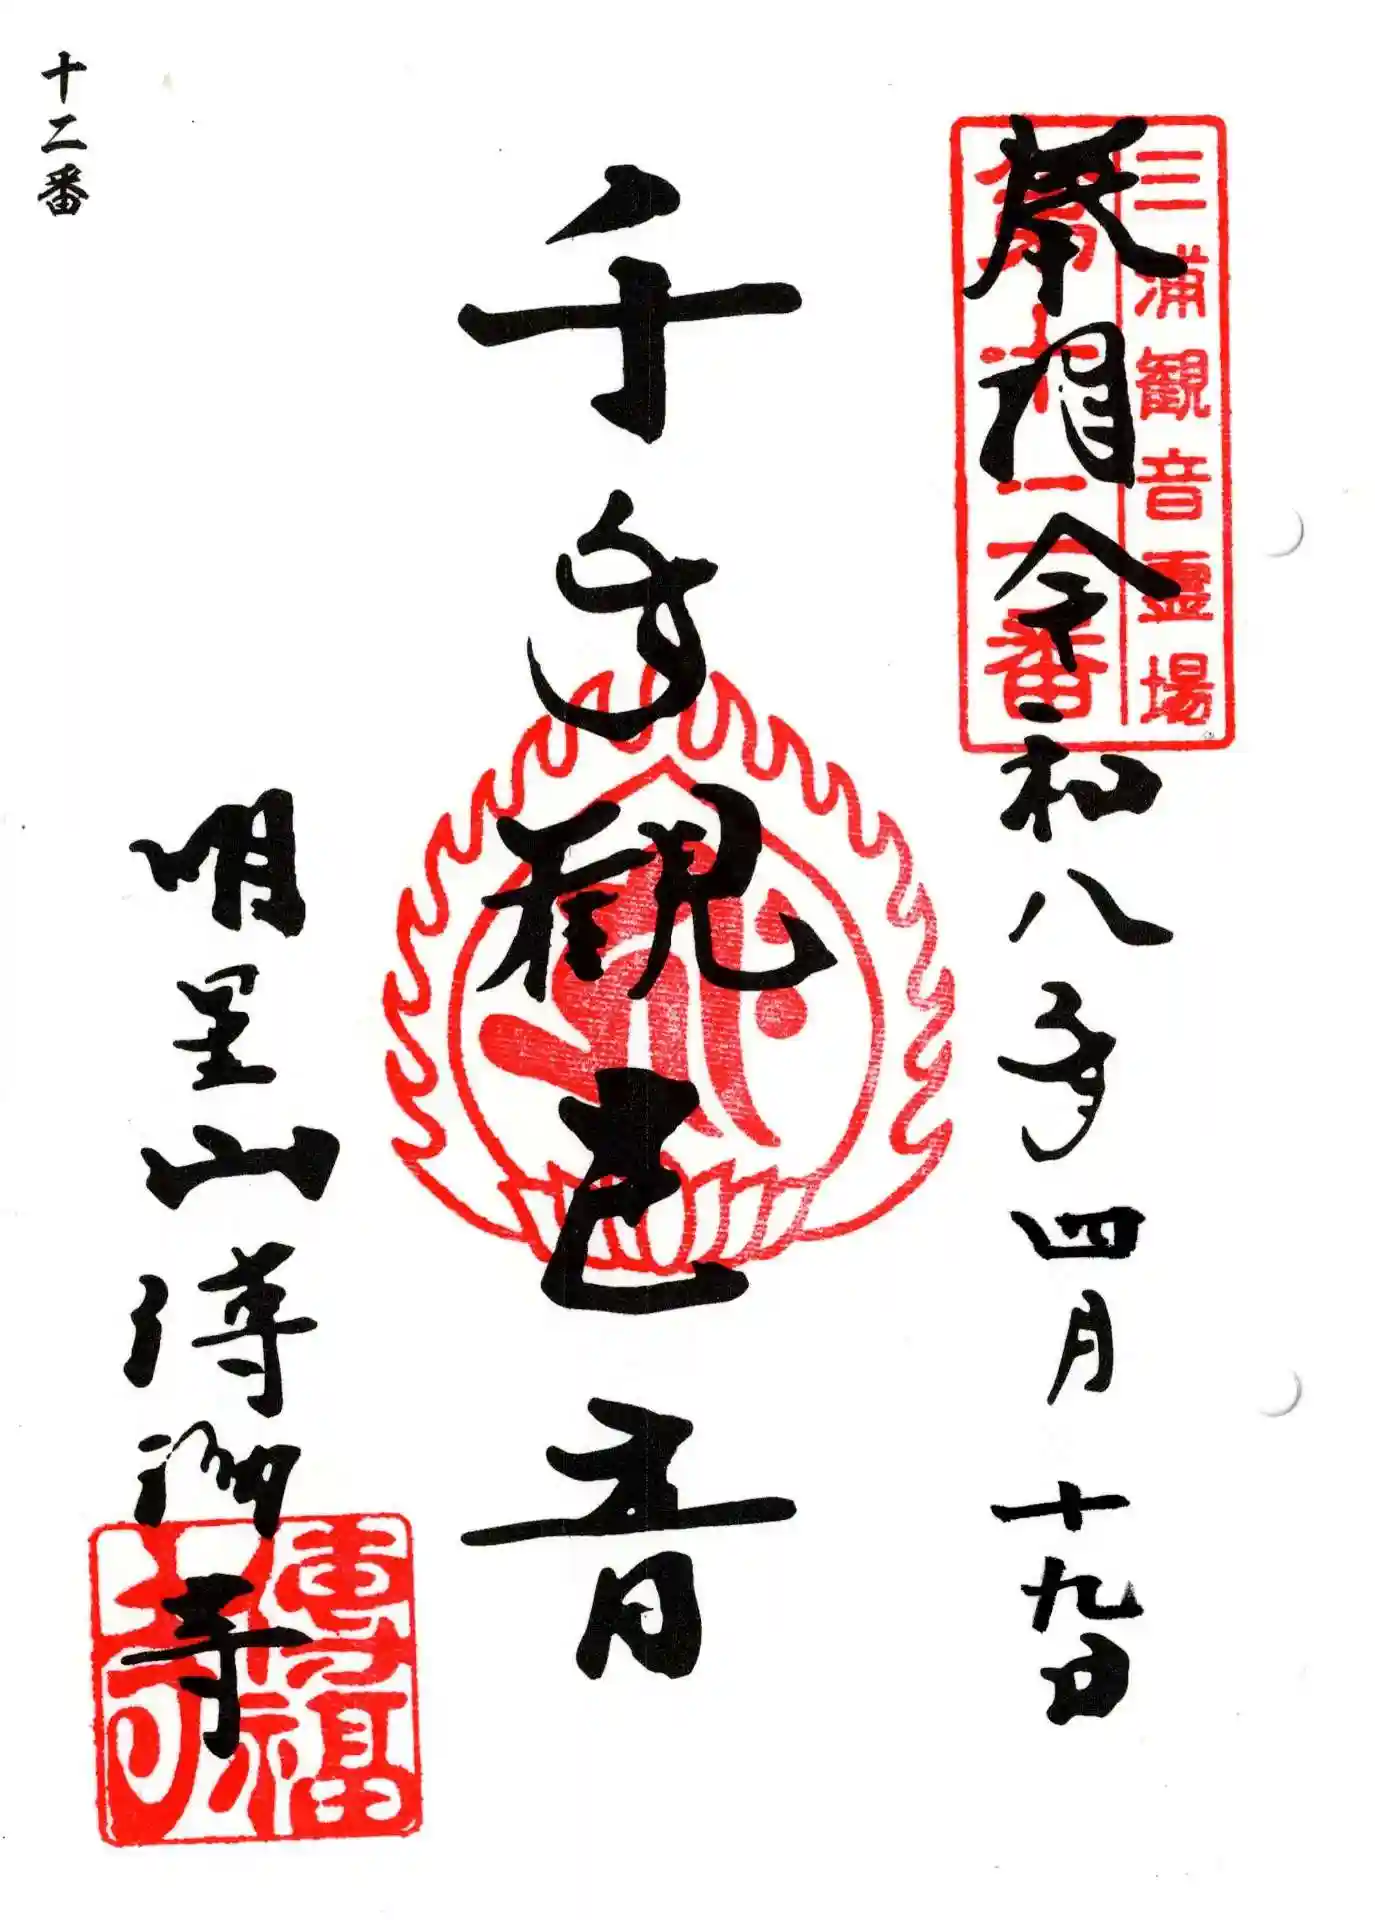 三浦観音霊場
第十二番
奉拝 令和八年四月十九日
千手観世音
明星山 傳福寺
傳福
寺印
十二番